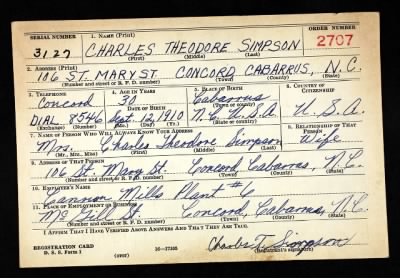 SERIAL NUMBER 1. NAME (Print) ORDER NUMBER
3127 CHARLES THEODORE SIMPSON 2707
(First) (Middle) (Last)
2. ADDRESS (Print)
106 ST. MARY ST. CONCORD CABARRUS, N.C.
(Number and street or R. F. D. number) (Town) (County) (State)
3. TELEPHONE 4. AGE IN YEARS 5. PLACE OF BIRTH 6. COUNTRY OF CITIZENSHIP
Concord 30 Cabarrus
DATE OF BIRTH (Town or county)
DIAL. 8546 Sept. 12, 1910 N.C. U.S.A. U.S.A.
(Exchange) (Number) (Mo.) (Day) (Yr.) (State or country)
7. NAME OF PERSON WHO WILL ALWAYS KNOW YOUR ADDRESS 8. RELATIONSHIP OF THAT PERSON
Mrs. Charles Theodore Simpson Wife
(Mr., Mrs., Miss) (First) (Middle) (Last)
9. ADDRESS OF THAT PERSON
106 St. Mary St. Concord, Cabarrus, N.C.
(Number and street or R. F. D. number) (Town) (County) (State)
10. EMPLOYER'S NAME
Cannon Mills Plant #6
11. PLACE OF EMPLOYMENT OR BUSINESS
McGill St. Concord, Cabarrus, N.C.
(Number and street or R. F. D. number) (Town) (County) (State)
I AFFIRM THAT I HAVE VERIFIED ABOVE ANSWERS AND THAT THEY ARE TRUE.
REGISTRATION CARD Charles T. Simpson
D. S. S. Form 1 (Registrant's signature)